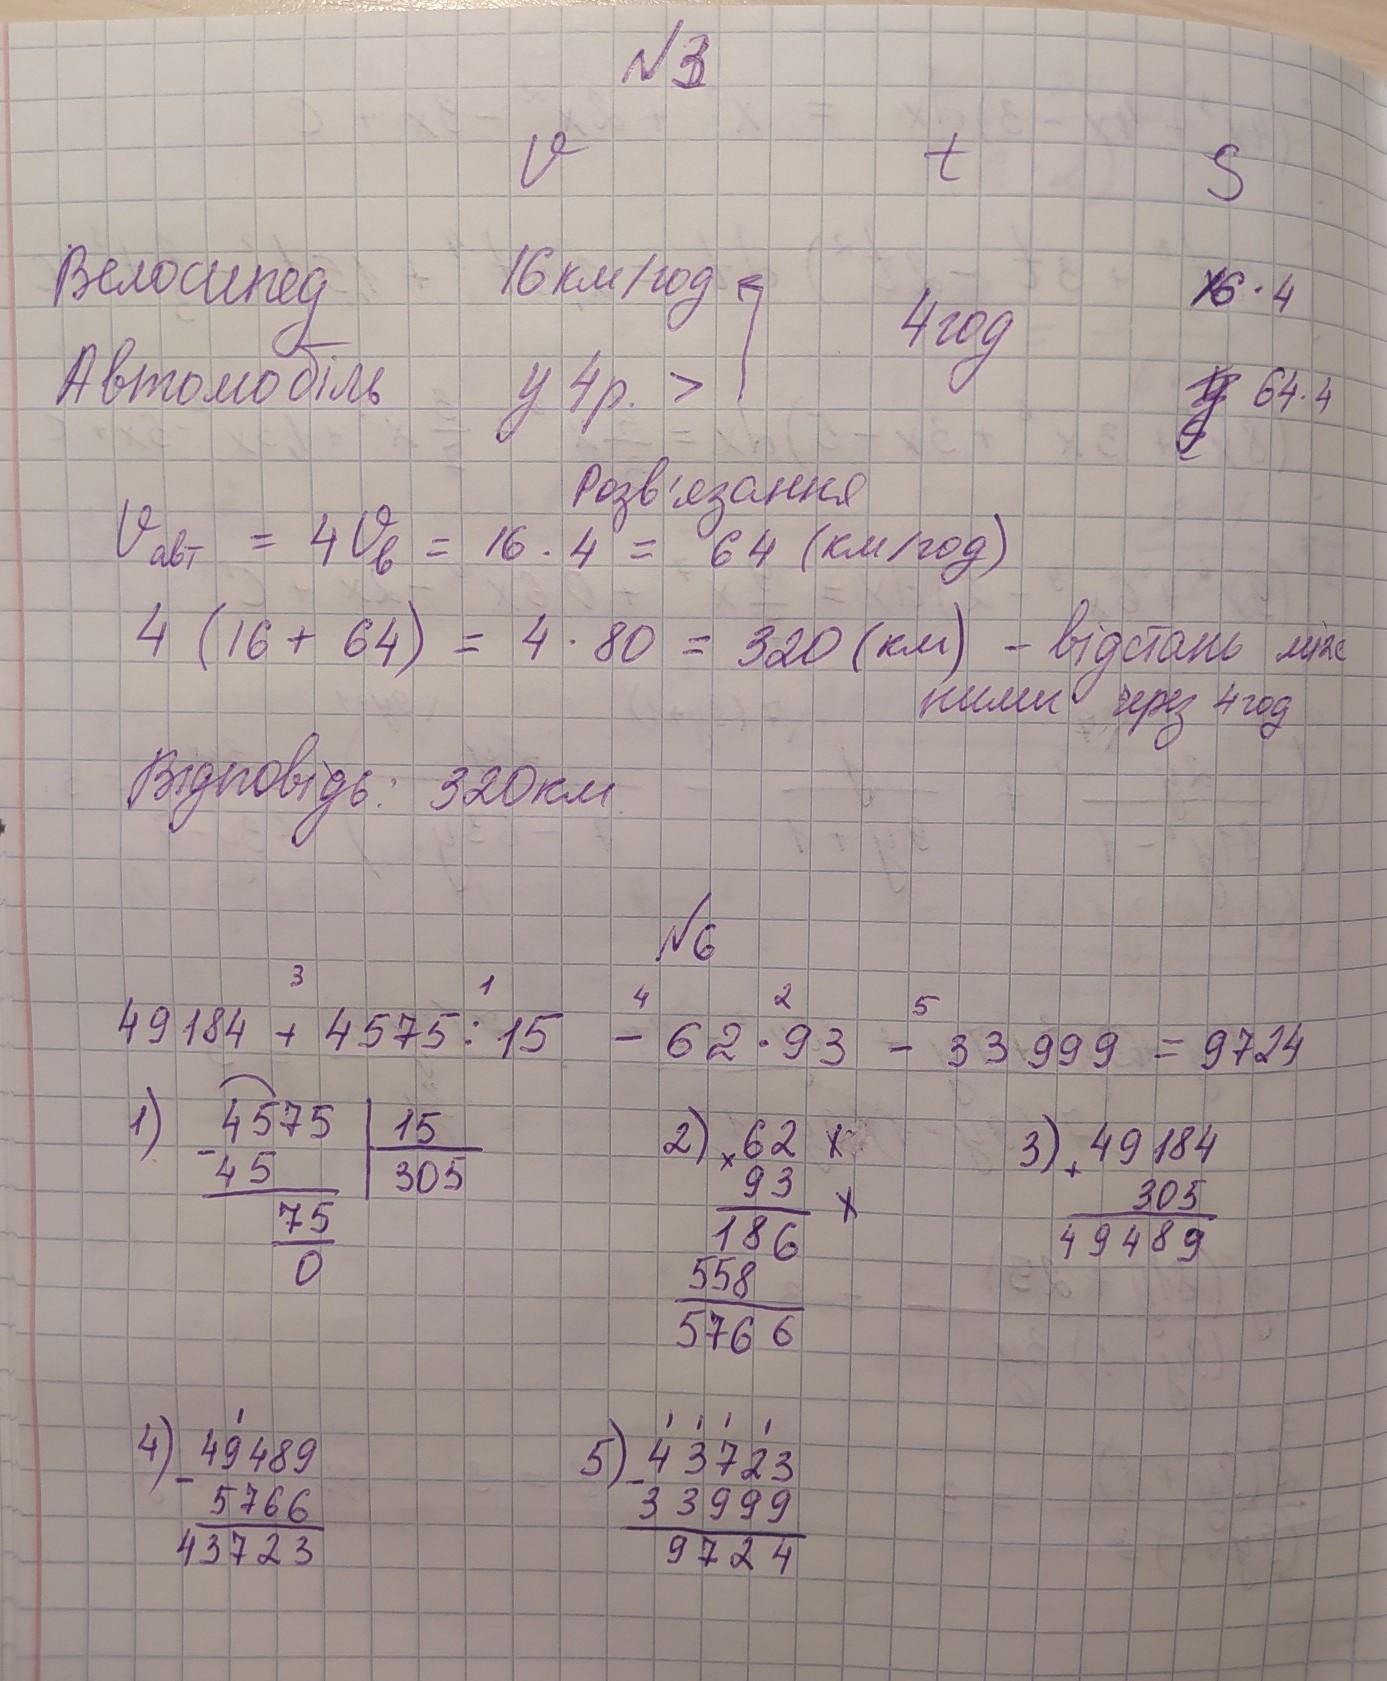 №3
V t S
Велосипед 16 км/год 16·4
4 год
Автомобіль у 4 р. > 64·4
Розв'язання
Vавт = 4Vв = 16·4 = 64 (км/год)
4 (16 + 64) = 4·80 = 320 (км) - відстань між
ними через 4 год
Відповідь: 320 км
№6
3 1 4 2 5
49184 + 4575 : 15 - 62·93 - 33999 = 9724
1) 4575 | 15
- 45 | 305
75
0
2) 62
× 93
186
558
5766
3) 49184
+ 305
49489
4) 49489
- 5766
43723
5) 43723
- 33999
9724